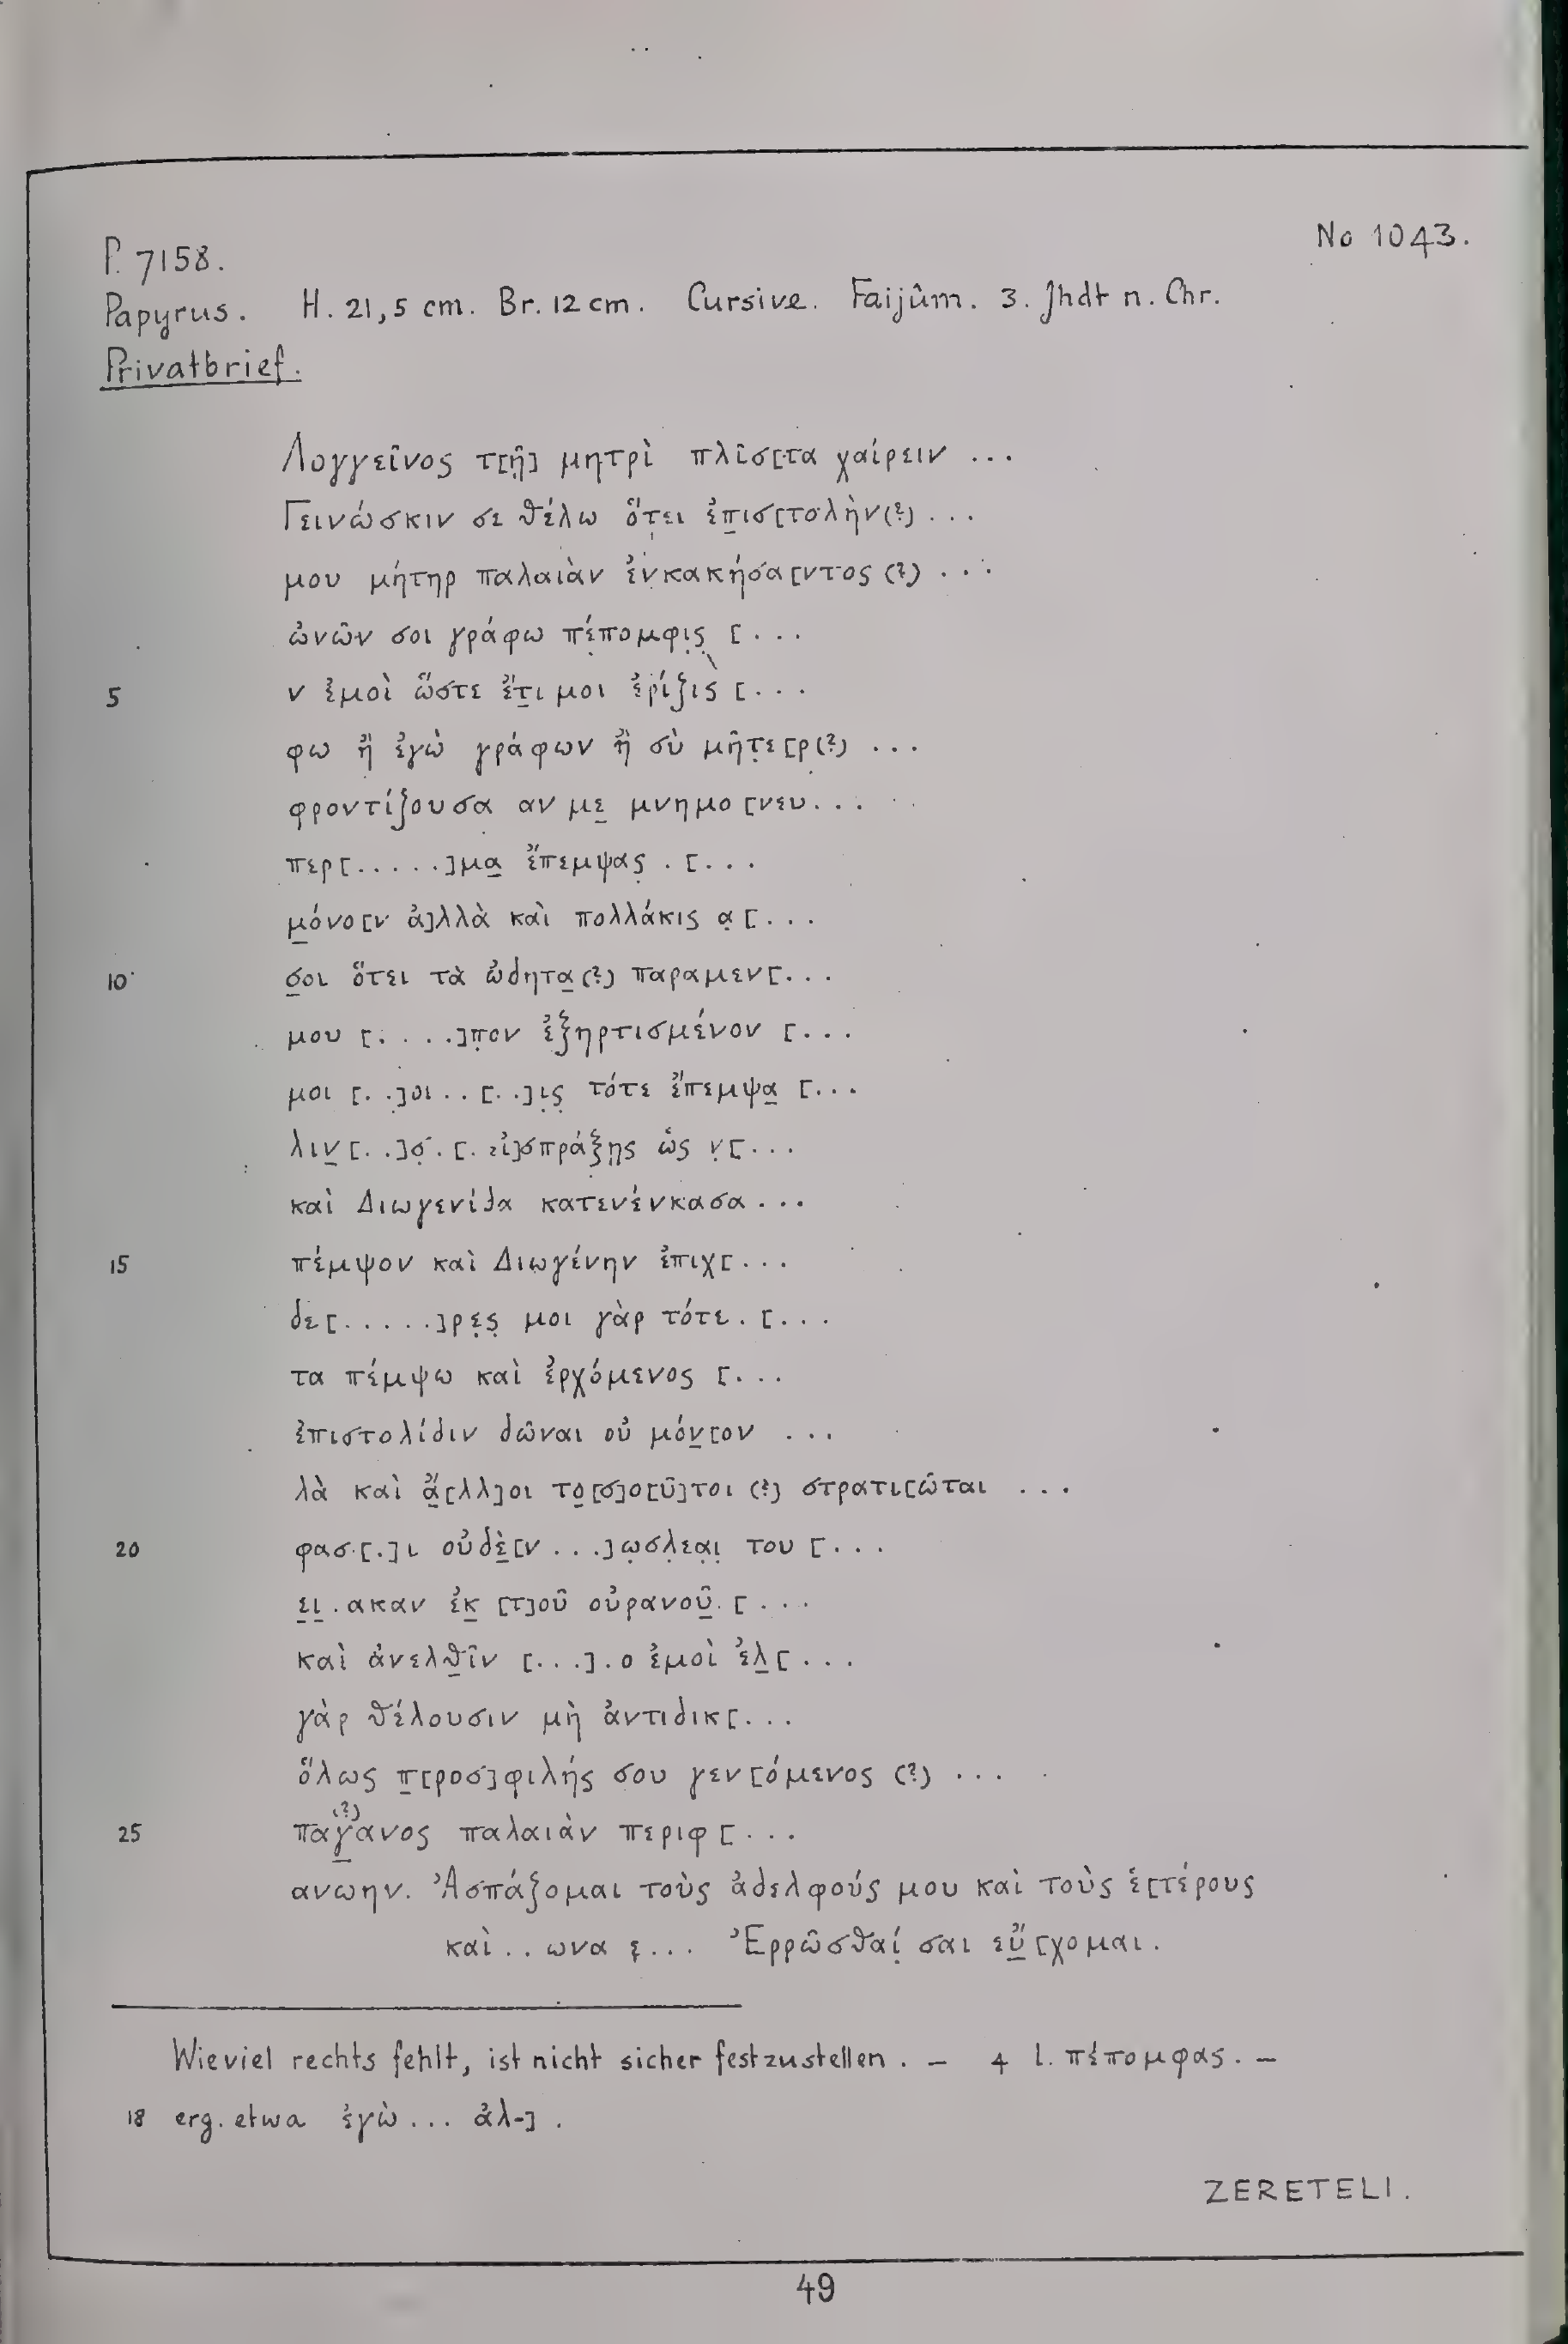 No 1043.
P. 7158.
Papyrus. H. 21,5 cm. Br. 12 cm. Cursive. Faijûm. 3. Jhdt n. Chr.
Privatbrief.
Λογγεῖνος τ[ῇ] μητρὶ πλῖσ[τα χαίρειν ...
Γεινώσκιν σε θέλω ὅτει ἐπισ[τολὴν(?) ...
μου μήτηρ παλαιὰν ἐνκακήσα[ντος (?) ...
ὠνῶν σοι γράφω πέπομφις [...
5 ν ἐμοὶ ὥστε ἔτι μοι ἐρίζις [...
φω ἢ ἐγὼ γράφων ἢ σὺ μῆτε[ρ(?) ...
φροντίζουσα αν με μνημο[νευ...
περ[.....]μα ἔπεμψας . [...
μόνο[ν ἀ]λλὰ καὶ πολλάκις α [...
10 σοι ὅτει τὰ ὠδητα(?) παραμεν[...
μου [.....]πον ἐξηρτισμένον [...
μοι [..]οι..[..]ις τότε ἔπεμψα [...
λιν[..]σ.[. εἰ]σπράξης ὡς ν[...
καὶ Διωγενίδα κατενένκασα...
15 πέμψον καὶ Διωγένην ἐπιχ[...
δε[.....]ρες μοι γὰρ τότε. [...
τα πέμψω καὶ ἐρχόμενος [...
ἐπιστολίδιν δῶναι οὐ μόν[ον ...
λὰ καὶ ἄ[λλ]οι το[σ]ο[ῦ]τοι (?) στρατι[ῶται ...
20 φασ.[.]ι οὐδὲ[ν ...]ωσλεαι του [...
ει.ακαν ἐκ [τ]οῦ οὐρανοῦ. [...
καὶ ἀνελθῖν [...].ο ἐμοὶ ἐλ[...
γὰρ θέλουσιν μὴ ἀντιδικ[...
ὅλως π[ροσ]φιλής σου γεν[όμενος (?) ...
25 παγ(?)ανος παλαιὰν περιφ[...
ανωην. Ἀσπάζομαι τοὺς ἀδελφούς μου καὶ τοὺς ἑ[τέρους
καὶ..ωνα ε... Ἐρρῶσθαί σαι εὔ[χομαι.
Wieviel rechts fehlt, ist nicht sicher festzustellen. – 4 l. πέπομφας. –
18 erg. etwa ἐγὼ... ἀλ-].
ZERETELI.
49